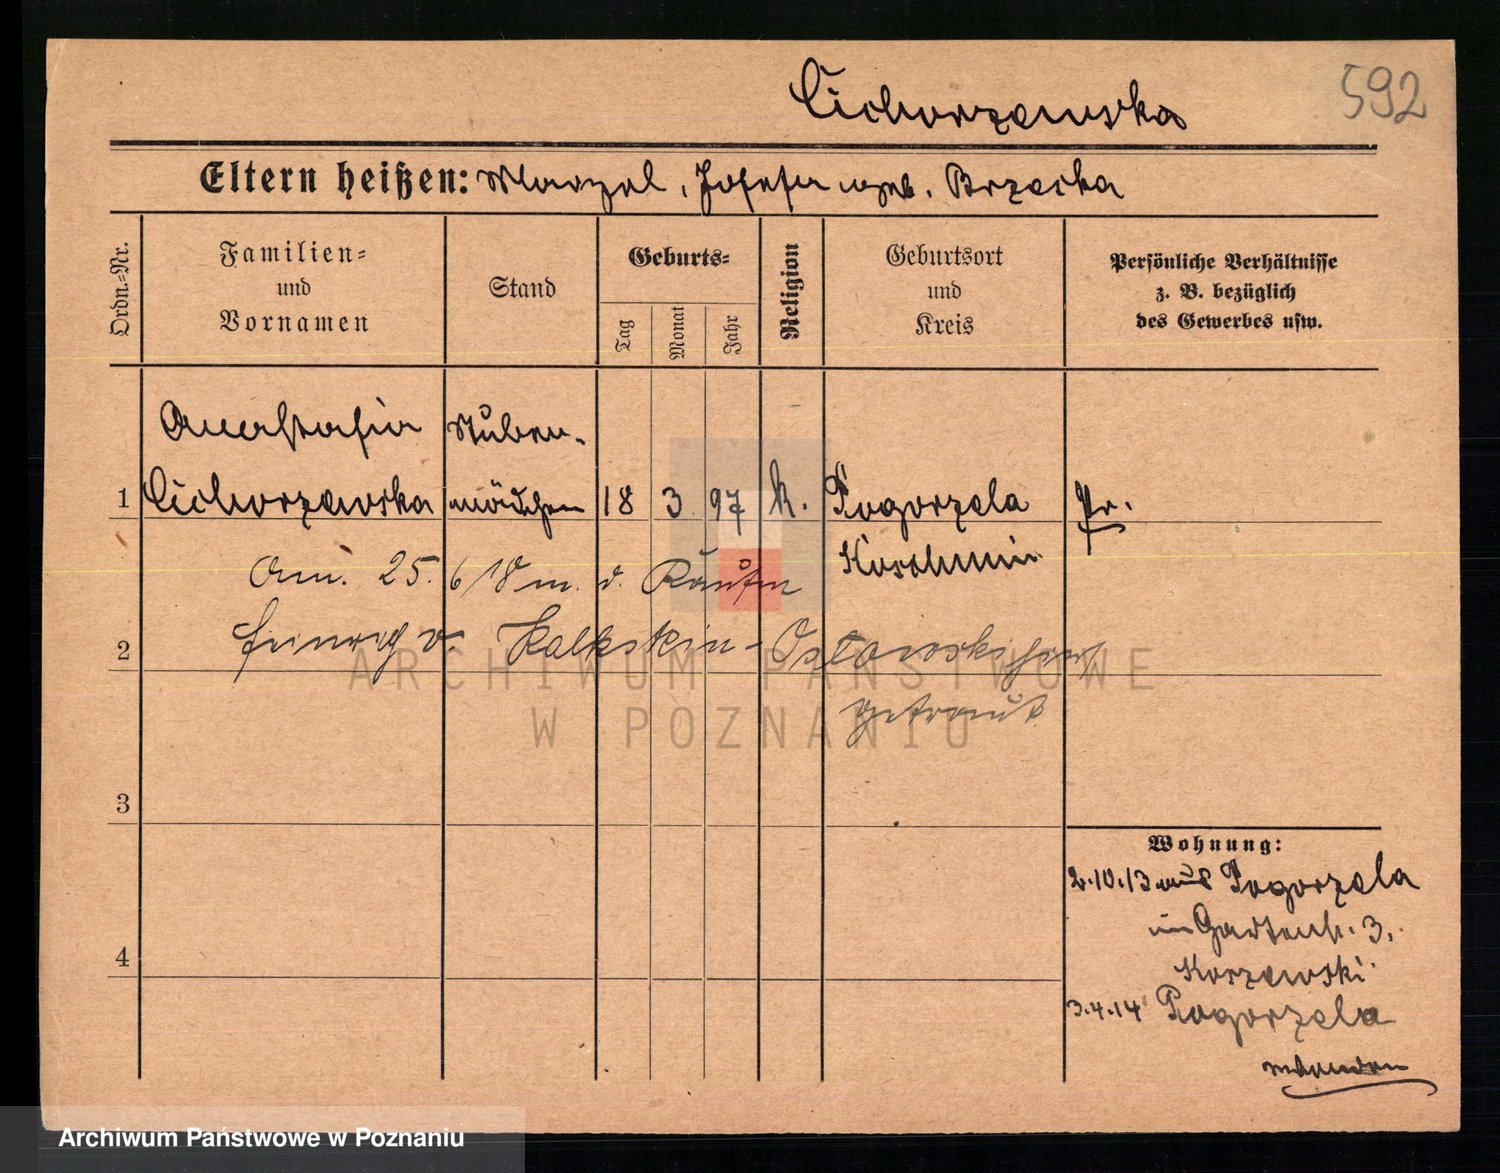 592
Cichorzewska
Eltern heißen: Marzel, Josefa geb. Brzeska
Ordn.-Nr.
Familien-
und
Vornamen
Stand
Geburts-
Tag
Monat
Jahr
Religion
Geburtsort
und
Kreis
Persönliche Verhältnisse
z. B. bezüglich
des Gewerbes usw.
Anastasia Stuben-
1 Cichorzewska mädchen 18 3 97 k. Pogorzela Pr.
Koschmin
Am. 25. 6 18 m. d.
2 v. Kalkstein-
getraut
3
4
Wohnung:
2.10.13 aus Pogorzela
Gartenstr. 3.
Korzewski
3.4.14 Pogorzela
ARCHIWUM PAŃSTWOWE
W POZNANIU
Archiwum Państwowe w Poznaniu